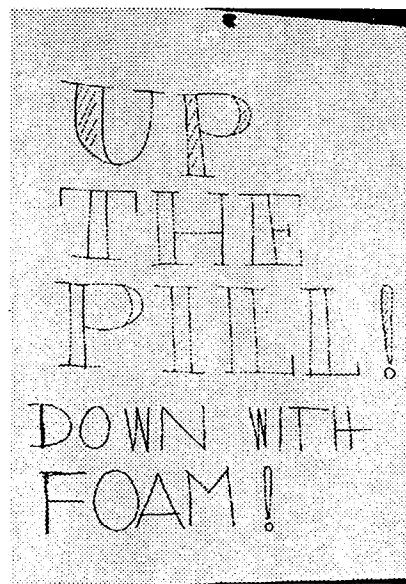 UP
THE
PILL!
DOWN WITH
FOAM!